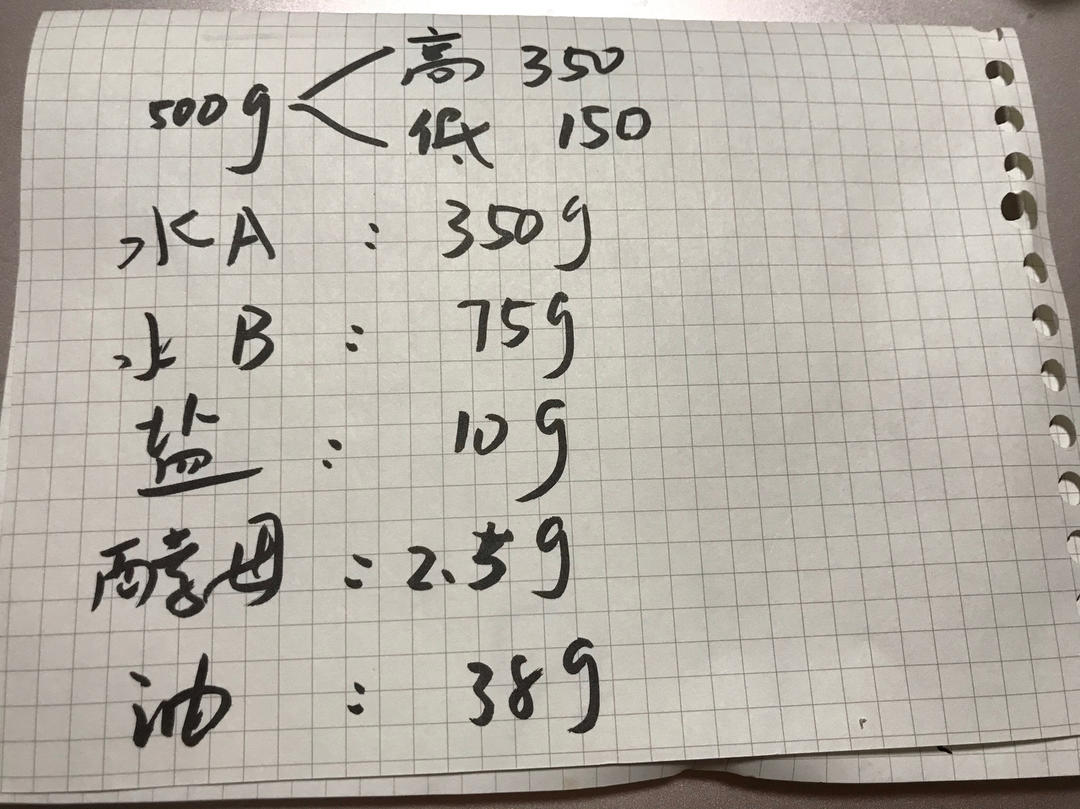 500g 高 350
低 150
水A : 350g
水B : 75g
盐 : 10g
酵母 : 2.5g
油 : 38g